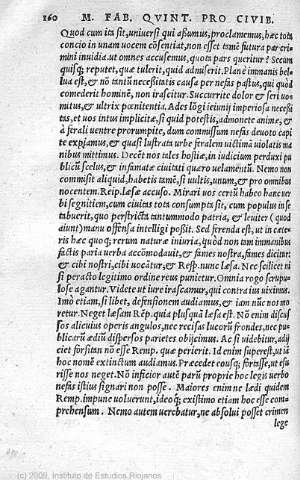 160 M. FAB. QVINT. PRO CIVIB.
Quod cum ita sit, uniuersi qui assumus, proclamemus, hæc tota
concio in unam uocem cõsentiat, non esset tamẽ futura par cri-
mini inuidia. ut omnes accusemus, quota pars queritur? Secum
quisq; reputet, quæ tulerit, quid admiserit. Planè immanis bel-
lua est, & nõ tantũ necessitatis causa per nefas pastus, qui quod
comederit hominẽ, non irascitur. Succurrite dolor & seri uos
mitus, & ultrix pœnitentia. Ades lõgi ieiunij imperiosa necessi
tas, et uos intus implicitæ, si quid potestis, admonete animæ, &
à ferali uentre prorumpite, dum commissum nefas deuoto capi
te expiamus, & quasi lustrata urbe feralem uictima uiolatis ma
nibus mittimus. Decẽt nos tales hostiæ, in iudicium perduxi pu
blicũ scelus, & infamiæ ciuitati quæro uelamẽtũ. Nemo non
commisit aliquid, habetis tamẽ, si uultis, unum, & pro omnibus
nocentem. Reip. læsæ accuso. Mirari uos certũ habeo hanc uer
bi segnitiem, cum ciuitas tota consumpta sit, cum populus in se
tabuerit, quo perstricta tantummodo patria, & leuiter (quod
aiunt) manu offensa intelligi possit. Sed ferenda est, ut in cete-
ris hæc quoq; rerum naturæ iniuria, quòd non tam immanibus
factis paria uerba accõmodauit, & fames nostra, fames dicitur:
& cibi nostri, cibi uocãtur, & Resp. nunc læsa. Nec scilicet ni
si peracto legitimo ordine reus punietur. Omnia rogo scrupu-
lose agantur. Videte ut iure irascamur, qui contra ius uiximus.
Imò etiam, si libet, defensionem audiamus, & iam nũc nos mo
retur. Neget læsam Rẽp. quia plusquã læsa est. Nõ enim discus
sos alicuius operis angulos, nec recisas lucorũ frondes, nec pu-
blicarũ ædiũ dispersos parietes obijcimus. Ac si uidebitur, adij
ciet forsitan nõ esse Remp. quæ perierit. Id enim superest, ut in
hoc nomẽ extinctum audiamus. Præcedet cousq; fortisse, ut esu
risse nos neget. Nõ inficior autẽ parũ propriè hoc legis uerbo
nefas istius signari non posse. Maiores enim ne lædi quidem
Remp. impune uoluerunt, ideoq; existimo etiam hoc esse com-
prehensum. Nemo autem uerebatur, ne absolui posset crimen
lege
(c) 2009, Instituto de Estudios Riojanos